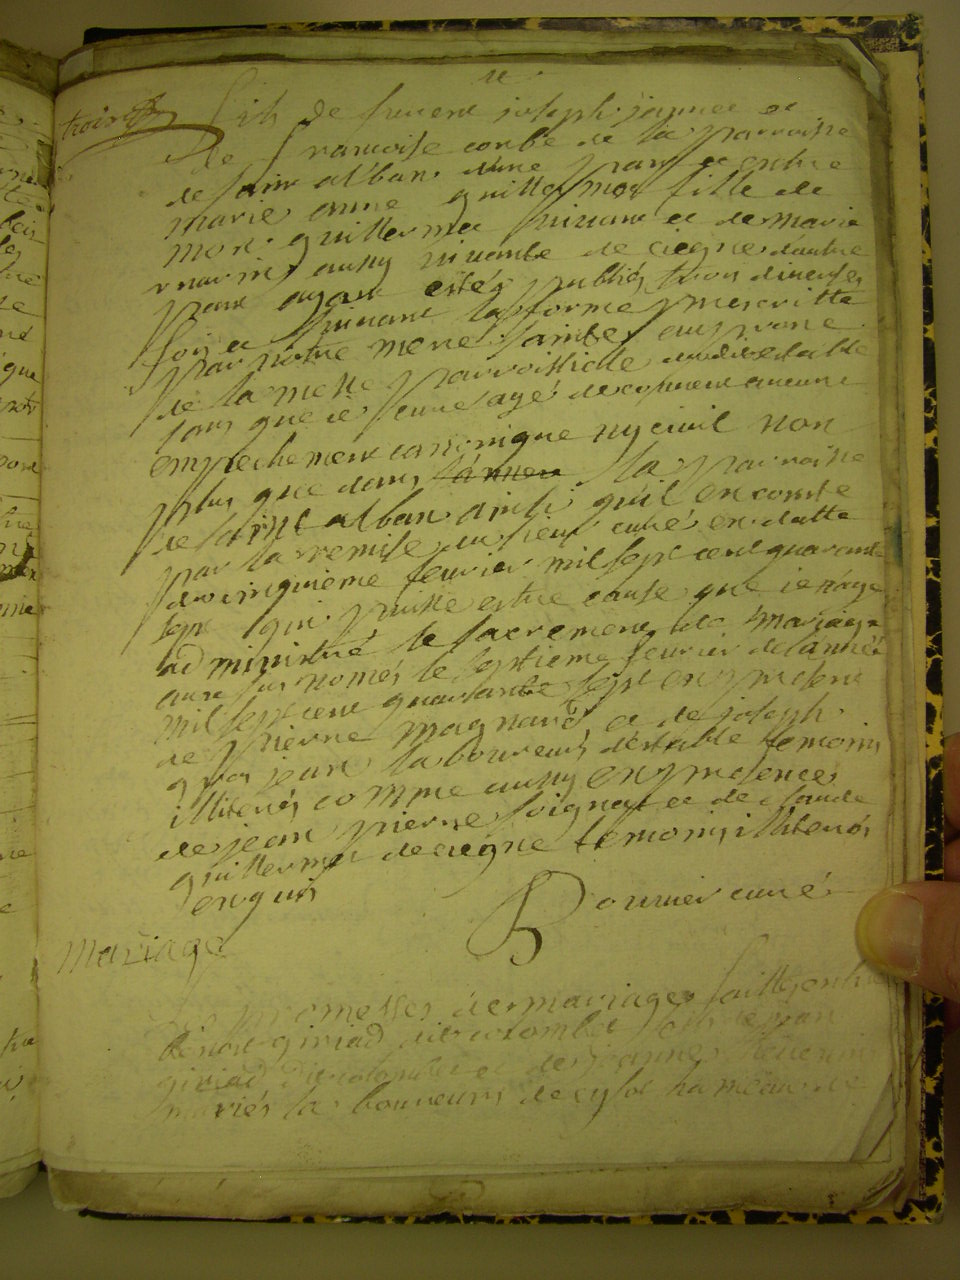 troise
fils de furent joseph jannee et
de francoise corbe de la parroisse
de saint alban d'une part et entre
marie anne guillermet fille de
mort guillermet vivant et de marie
marin aussy vivante de ciegne dautre
part ayant estés publiés trois diverses
fois et suivant la forme prescritte
par notre mere sainte au prone
de la messe parroissialle
sans que ie
empechement canonique ny civil non
plus que dans l'annee la parroisse
de saint alban ainsi qu'il en conste
par la remise du sieur curé en datte
du cinquieme fevrier mil sept cent quarante
sept qui puisse estre cause que ie n'aye
administré le sacrement de mariage
aux sus només le septieme fevrier de l'année
mil sept cent quarante sept en presence
de pierre magnard et de joseph
gros jean laboureurs temoins
illiterés comme aussy en presence
de jean pierre soignat et de claude
guillermet de ciegne temoins illiterés
enquis
Bournier curé
Mariage
les promesses de mariage faittes entre
benoit giriad dit colombet fils de jean
giriad dit colombet et de jeanne
mariés laboureurs de hameau de